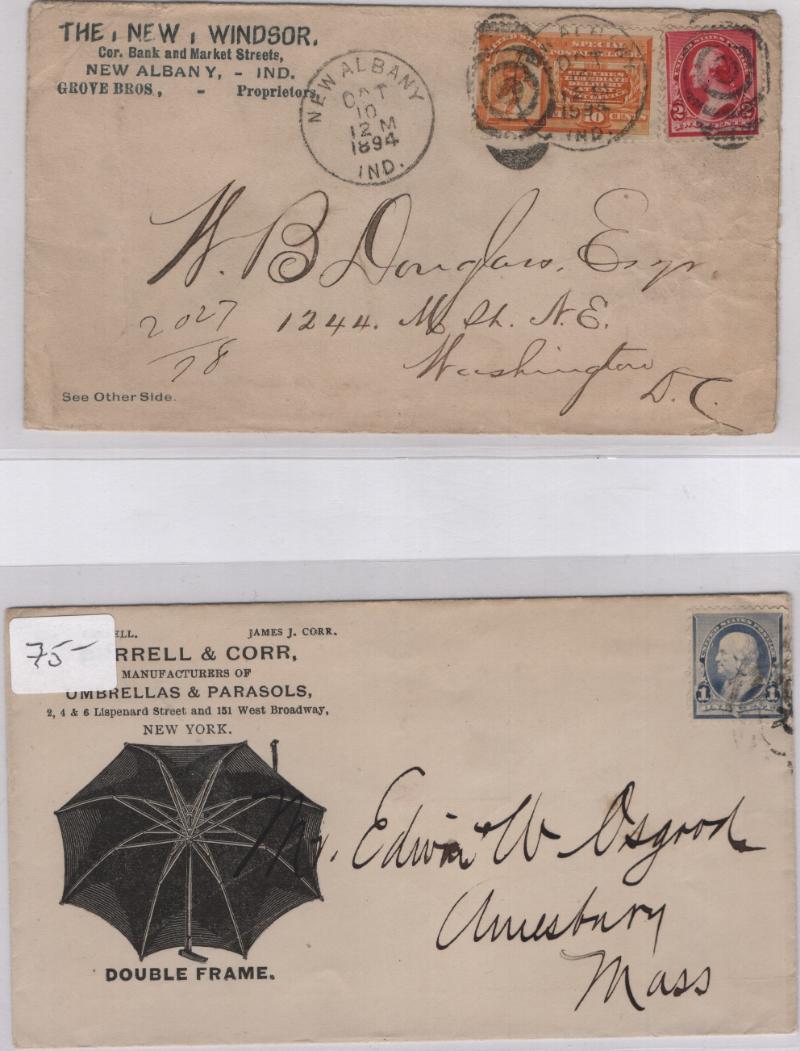 THE NEW WINDSOR,
Cor. Bank and Market Streets,
NEW ALBANY, - IND.
GROVE BROS., - Proprietors
NEW ALBANY
OCT
10
12 M
1894
IND.
SPECIAL
POSTAL DELIVERY
10 CENTS
1894
IND.
2 2
W. B. Douglass, Esqr.
1244. M St. N.E.
Washington
D.C.
2027
/78
See Other Side.
75-
ELL. JAMES J. CORR.
RRELL & CORR,
MANUFACTURERS OF
UMBRELLAS & PARASOLS,
2, 4 & 6 Lispenard Street and 151 West Broadway,
NEW YORK.
DOUBLE FRAME.
UNITED STATES POSTAGE
1 1
ONE CENT
Mr. Edwin W Osgood
Amesbury
Mass